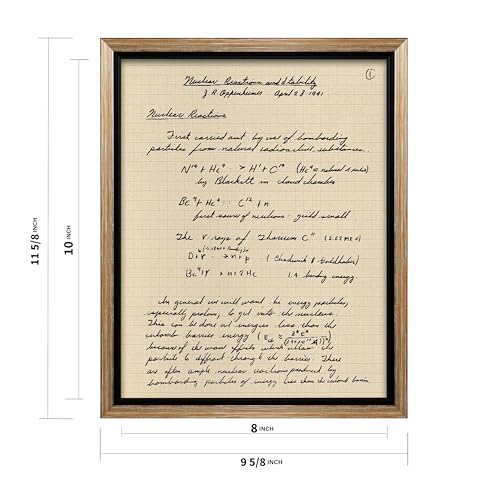 Nuclear Reactions and Stability
J. R. Oppenheimer April 28 1941
1
Nuclear Reactions
First carried out by use of bombarding
particles from natural radioactive substances.
N¹⁴ + He⁴ → H¹ + O¹⁷ (He⁴
by Blackett in cloud chamber
Be⁹ + He⁴ C¹² + n
first source of neutrons yield small
The γ rays of Thorium C" (2.62 MEV)
D + γ → n + p (Chadwick & Goldhaber)
Be⁹ + γ → n + 2He 1.4 binding energy
In general we will want hi energy particles,
especially protons, to get into the nucleus.
This can be done at energies less than the
coulomb barrier energy
because of the wave effects which allow the
particle to diffract through the barrier. There
are often ample nuclear reactions produced by
bombarding particles of energy less than the coulomb barrier.
11 5/8 INCH
10 INCH
8 INCH
9 5/8 INCH